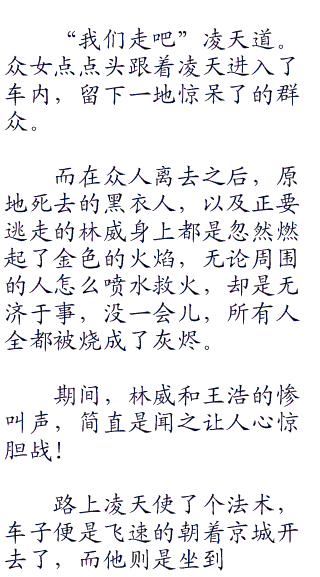 “我们走吧”凌天道。
众女点点头跟着凌天进入了
车内，留下一地惊呆了的群
众。
而在众人离去之后，原
地死去的黑衣人，以及正要
逃走的林威身上都是忽然燃
起了金色的火焰，无论周围
的人怎么喷水救火，却是无
济于事，没一会儿，所有人
全都被烧成了灰烬。
期间，林威和王浩的惨
叫声，简直是闻之让人心惊
胆战！
路上凌天使了个法术，
车子便是飞速的朝着京城开
去了，而他则是坐到